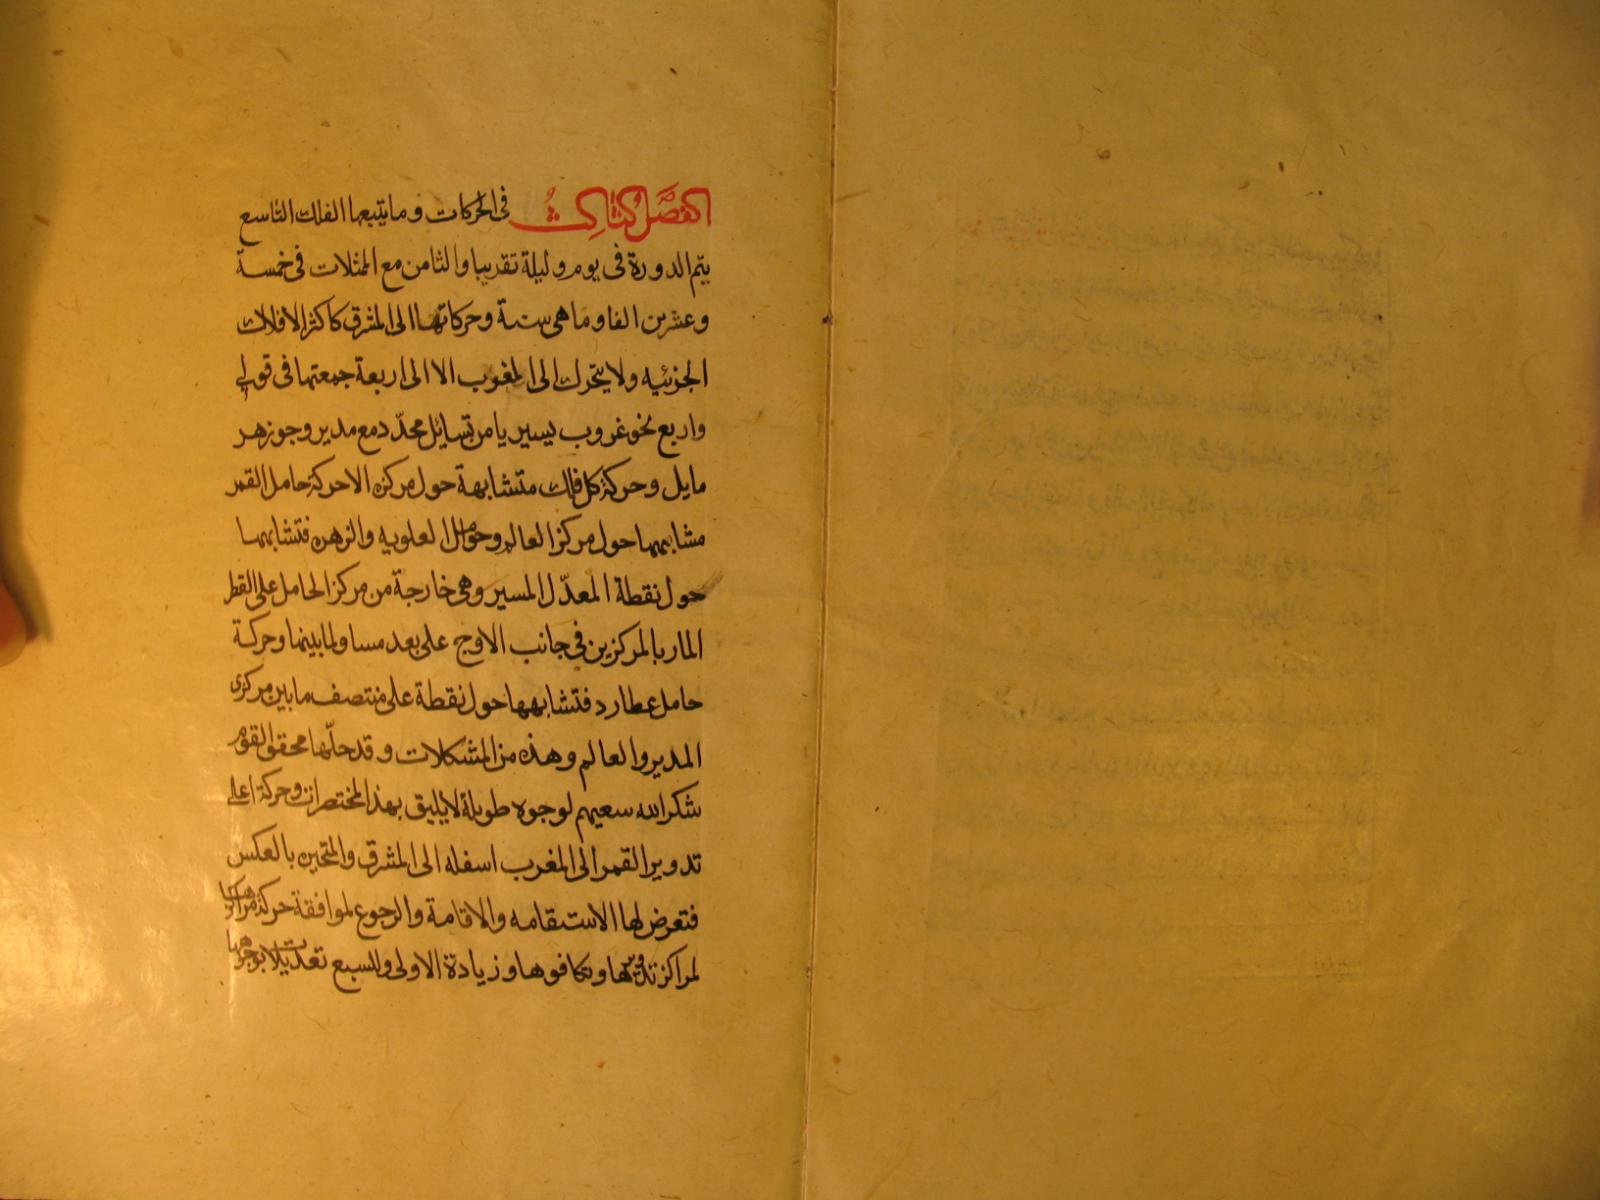 الفصل الثالث فى الحركات وما يتبعها الفلك التاسع
يتم الدورة فى يوم وليلة تقريبا والثامن مع الممثلات فى خمسة
وعشرين الفا وماهى سنة وحركاتها الى المشرق كاكثر الافلاك
الجزئيه ولا يتحرك الى المغرب الا الى اربعة جمعتها فى قولى
واربع نحو غروب يسير يا من تسائل محدّد مع مدير وجوزهر
مايل وحركة كل فلك متشابهة حول مركزه الا حركة حامل القمر
مشابهها حول مركز العالم وحوامل العلويه والزهره فتشابهها
حول نقطة المعدّل المسير وهى خارجة من مركز الحامل على القطر
المار بالمركزين فى جانب الاوج على بعد مساو لما بينهما وحركة
حامل عطارد فتشابهها حول نقطة على منتصف ما بين مركزى
المدير والعالم وهذه من المشكلات وقد حلّها محققو القوم
شكر الله سعيهم لوجوه طويلة لا يليق بهذا المختصرات وحركة اعلى
تدوير القمر الى المغرب اسفله الى المشرق والمتحيره بالعكس
فتعرض لها الاستقامه والاقامة والرجوع لموافقة حركة مراكزها
لمراكز تدويرها وتكافوها وزيادة الاولى وللسبع تعديلا